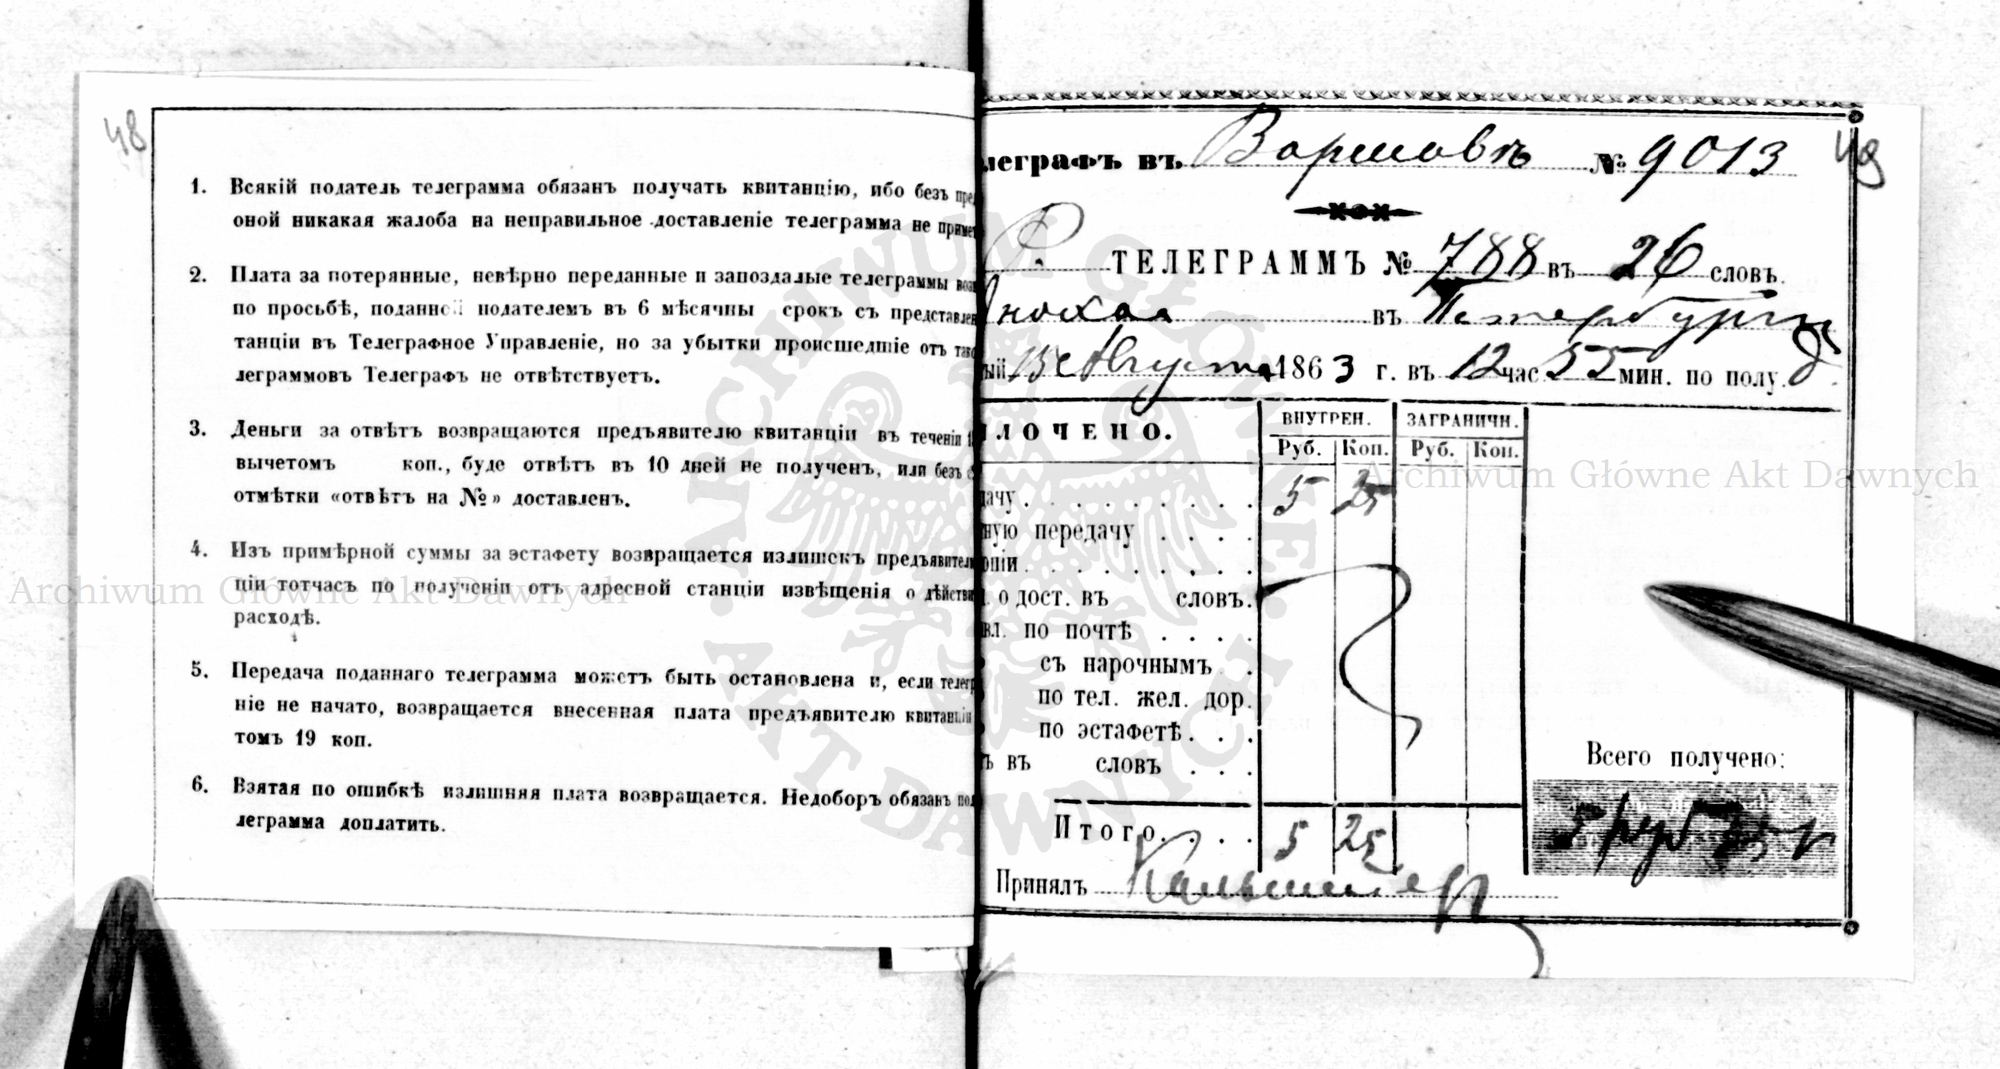 48
1. Всякій податель телеграмма обязанъ получать квитанцію, ибо безъ пред
оной никакая жалоба на неправильное доставленіе телеграмма не примет
2. Плата за потерянные, невѣрно переданные и запоздалые телеграммы воз
по просьбѣ, поданной подателемъ въ 6 мѣсячны срокъ съ представлен
танціи въ Телеграфное Управленіе, но за убытки происшедшіе отъ так
леграммовъ Телеграфъ не отвѣтствуетъ.
3. Деньги за отвѣтъ возвращаются предъявителю квитанціи въ теченіи
вычетомъ коп., буде отвѣтъ въ 10 дней не полученъ, или безъ
отмѣтки «отвѣтъ на №» доставленъ.
4. Изъ примѣрной суммы за эстафету возвращается излишекъ предъявител
ціи тотчасъ по полученіи отъ адресной станціи извѣщенія о дѣйстви
расходѣ.
5. Передача поданнаго телеграмма можетъ быть остановлена и, если телегр
ніе не начато, возвращается внесенная плата предъявителю квитанціи
томъ 19 коп.
6. Взятая по ошибкѣ излишняя плата возвращается. Недоборъ обязанъ под
леграмма доплатить.
леграфъ въ Варшавѣ № 9013
49
ТЕЛЕГРАММЪ № 788 въ 26 словъ.
въ Петербургъ
ый 15 Августа 1863 г. въ 12 час. 55 мин. по полу. д.
ЛОЧЕНО. ВНУТРЕН. ЗАГРАНИЧН.
Руб. Коп. Руб. Коп.
дачу 5 25
ную передачу
опіи
о дост. въ словъ.
вл. по почтѣ
съ нарочнымъ
по тел. жел. дор.
по эстафетѣ
ъ въ словъ
Всего получено:
5 руб 25 к
Итого 5 25
Принялъ
Archiwum Główne Akt Dawnych
Archiwum Główne Akt Dawnych
ARCHIWUM GŁÓWNE AKT DAWNYCH